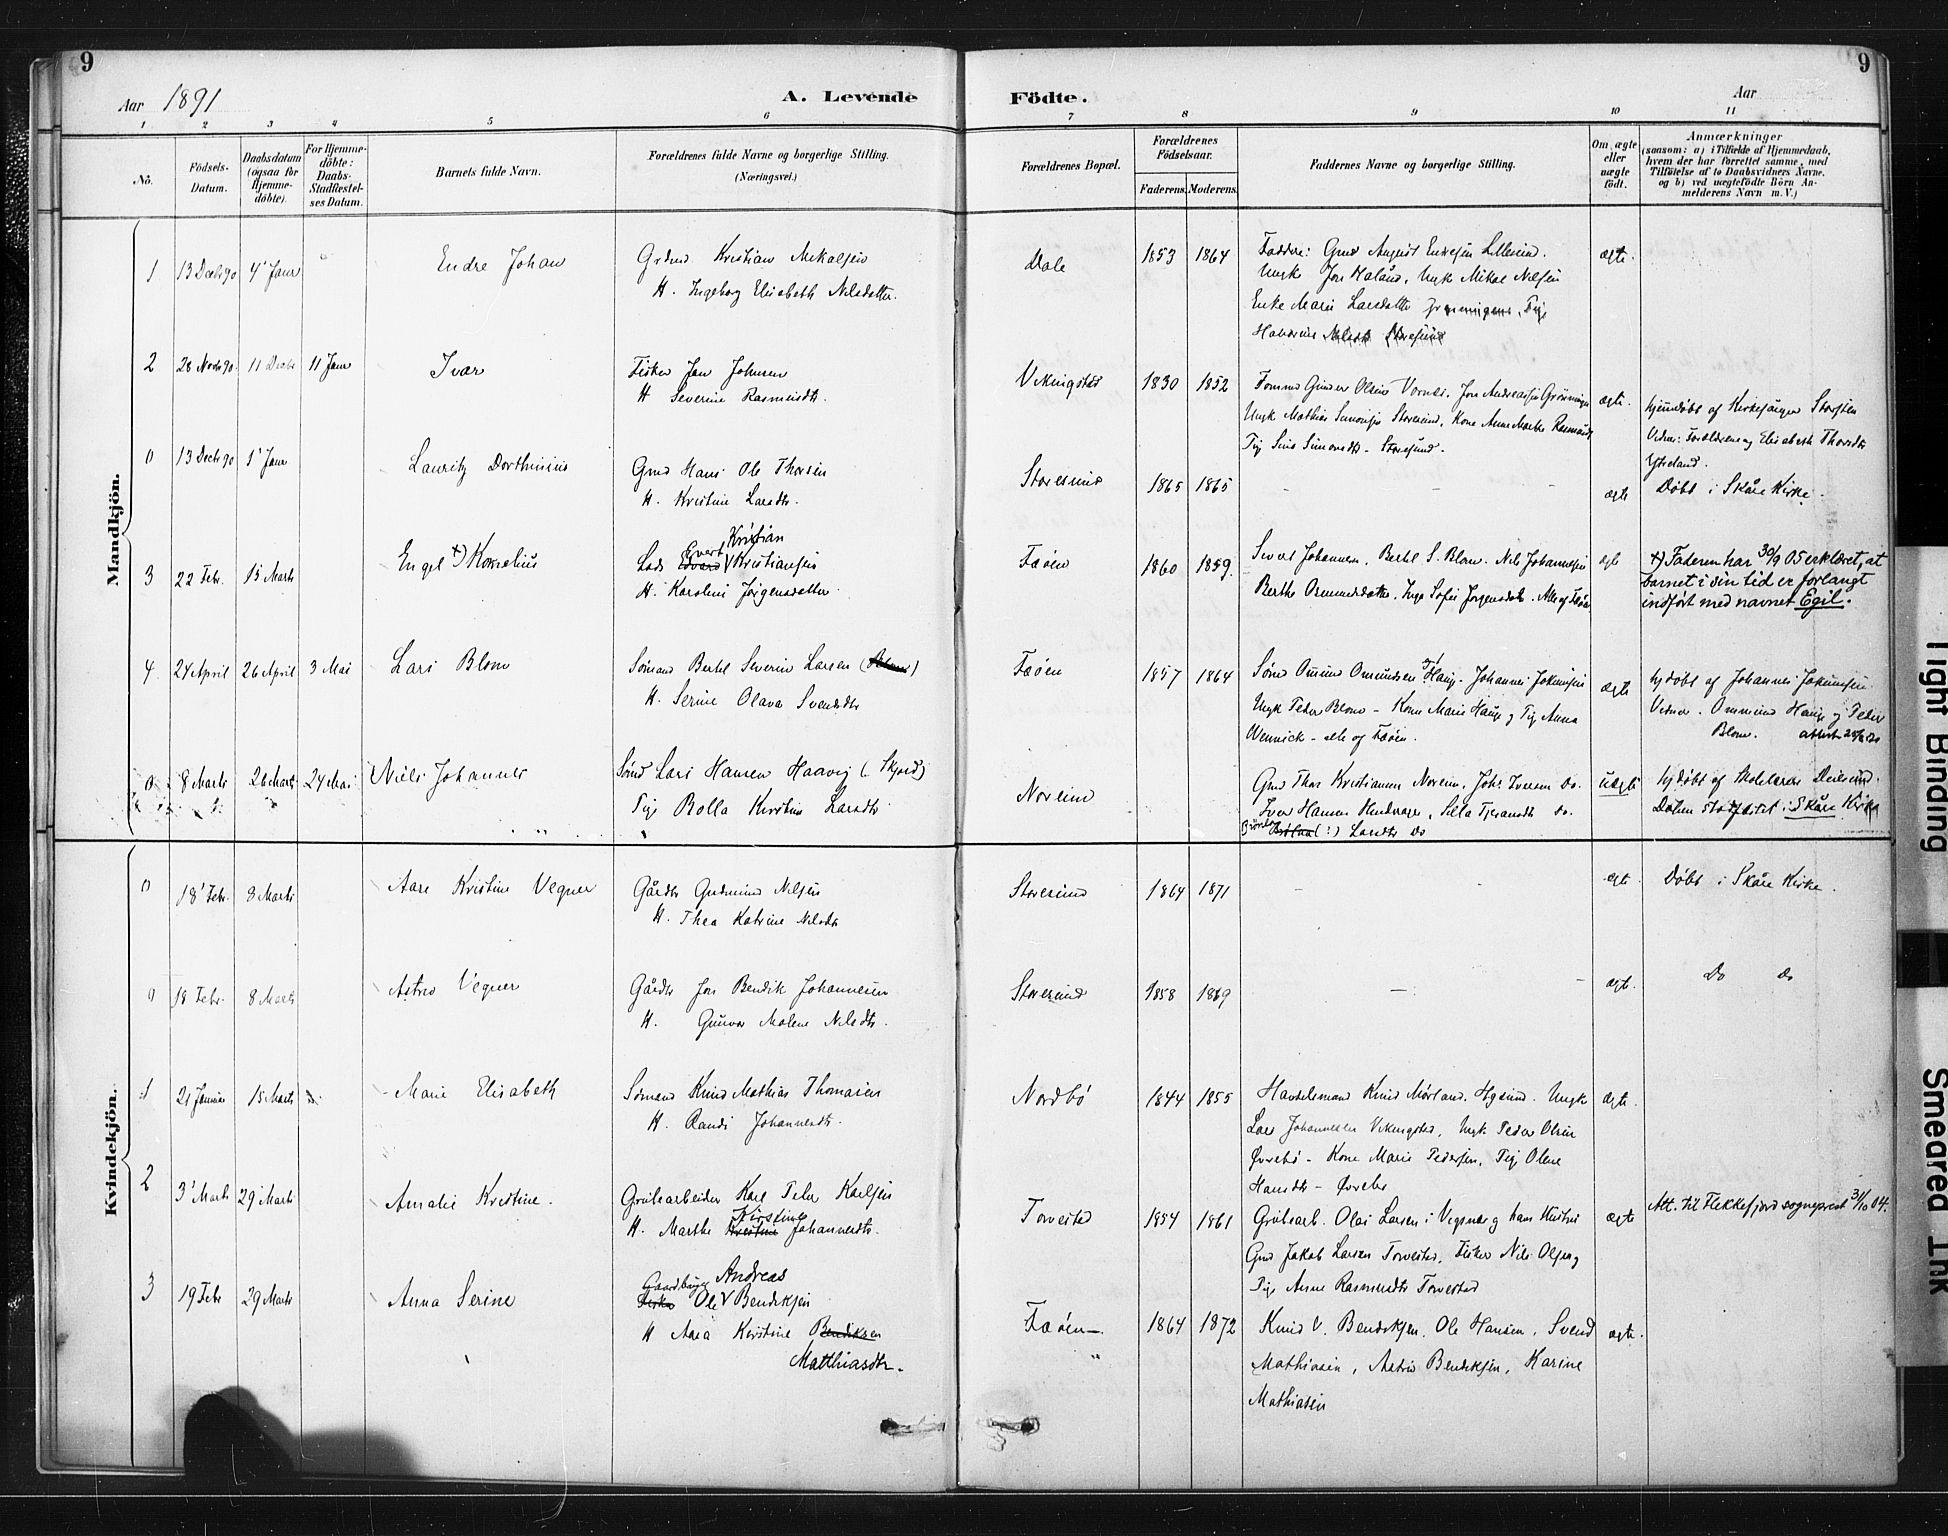 9
9
Aar 1891
A. Levende
Födte.
Aar
1 2 3 4 5 6 7 8 9 10 11
No.
Födsels-
Datum.
Daabsdatum
(ogsaa for
Hjemme-
døbte).
For Hjemme-
døbte:
Daabs-
Stadfæstel-
ses Datum.
Barnets fulde Navn.
Forældrenes fulde Navne og borgerlige Stilling.
(Næringsvei.)
Forældrenes Bopæl.
Forældrenes
Födselsaar.
Faderens. Moderens.
Faddernes Navne og borgerlige Stilling.
Om ægte
eller
uægte
født.
Anmærkninger
(saasom: a) i Tilfælde af Hjemmedaab,
hvem der har forrettet samme, med
Tilføielse af to Daabsvidners Navne,
og b) ved uægtefödte Börn An-
melderens Navn m. V.)
Mandkjön.
1 13 Decbr 90 4' Janr Endre Johan
Kristian Mikalsen
H. Ingeborg Elisabeth Nilsdatter.
Dale 1853 1864
Faddere: Gmd August Endresen
Ungk Jon Haland, Ungk Mikal Nilsen
Enke Marie Larsdatter
ægte.
2 28 Novbr 90. 11 Decbr 11 Janr Ivar
Fisker Jan Johnsen
H Severine Rasmusdtr.
Vikingstad 1830 1852
Gunder Olsen Vornes, Jon Andreassen Grønningen
Ungk Mathias Simonsen Storesund, Kone Anne Marthe
Pig Sina Simonsdtr - Storesund.
ægte.
hjemdøbt af Kirkesanger Storsten
Vidner: Forældrene og Elisabeth Thorsdtr
0 13 Decbr 90 1' Janr Lauritz Dorthinius
Gmd Hans Ole Thorsen
H. Kristine Larsdtr.
Storesund 1865 1865 - - -
ægte Døbt i Skåre Kirke.
3 22 Febr. 15 Marts Engel x) Kornelius
Kristian
Evert
Lods Edvard V Kristiansen
H. Karoline Jørgensdatter.
Fæøen 1860 1859.
Sivert Johannesen, Bertel S. Blom. Nils Johannesen
Berthe Ommundsdatter, Inga Sofie Jørgensdatter. Alle af Fæøen
ægte
x) Faderen har 30/9 05 erklæret, at
barnet i sin tid er forlangt
indført med navnet Egil.
4. 24 April 26 April 3 Mai Lars Blom
Sømand Bertel Severin Larsen
H. Serine Olava Svendsdtr
Fæøen 1857 1864
Sømd Omund Omundsen Hauge. Johannes Jokumsen
Ungk Peder Blom - Kone Marie Hauge og Pig Anna
Wennick - alle af Fæøen.
ægte
hjdøbt af Johannes Jokumsen
Vidner. Ommund Hauge og Peder
Blom.
0 8 Marts 26 Marts 24 Mai Niels Johannes
Sømd Lars Hansen Haavig
Pige Bolla Kirstine Larsdtr
Noreim
Gmd Thor Kristiansen Noreim, Johs Iversen Do.
Iver Hansen
Larsdtr Do
uægte
Daaben stadfæstet i Skåre Kirke
Kvindekjön.
0 18' Febr. 8 Marts Aase Kristine Vegner
Gårdbr Gudmund Nilsen
H. Thea Katrine Nilsdtr
Storesund 1864 1871 - -
ægte. Døbt i Skåre Kirke.
0 18 Febr. 8 Marts Astrid Vegner
Gårdbr Jon Bendik Johannesen
H. Gunvor Malene Nilsdtr.
Storesund 1858 1869 - -
ægte. Do Do
1 21 Januar 15 Marts Marie Elisabeth
Sømand Knud Mathias Thomasen
H. Randi Johannesdtr.
Nordbø 1844 1855
Handelsmand Knud Mørland, Høsund. Ungk
Lars Johannessen Vikingstad, Ungk Peder Olsen
Øvrebø - Kone Marie Pedersen, Pige Olene
Hansdtr - Øvrebø
ægte.
2 3' Marts 29' Marts Amalie Kristine.
Grubearbeider Karl Peter Karlsen
Kirstine
H. Marthe Kristine Johannesdtr.
Torvestad 1854 1861
Grubearb. Olai Larsen i Vigsnæs og hans Hustru
Gmd Jakob Larsen Torvestad, Fisker Nils Olsen og
Pige Anne Rasmusdtr Torvestad
ægte
Att. til Flekkefjord sogneprest 31/10 04.
3 19 Febr 29 Marts Anna Serine
Andreas
Gaardbruger
Fisker Ole V Bendiksen
H Kristine Bendiksen
Matthiasdtr.
Fæøen - 1864 1872
Knud V. Bendiksen, Ole Hansen, Svend
Mathiasen, Astrid Bendiksen, Karine
Mathiasen
ægte.
Tight Binding
Smeared Ink